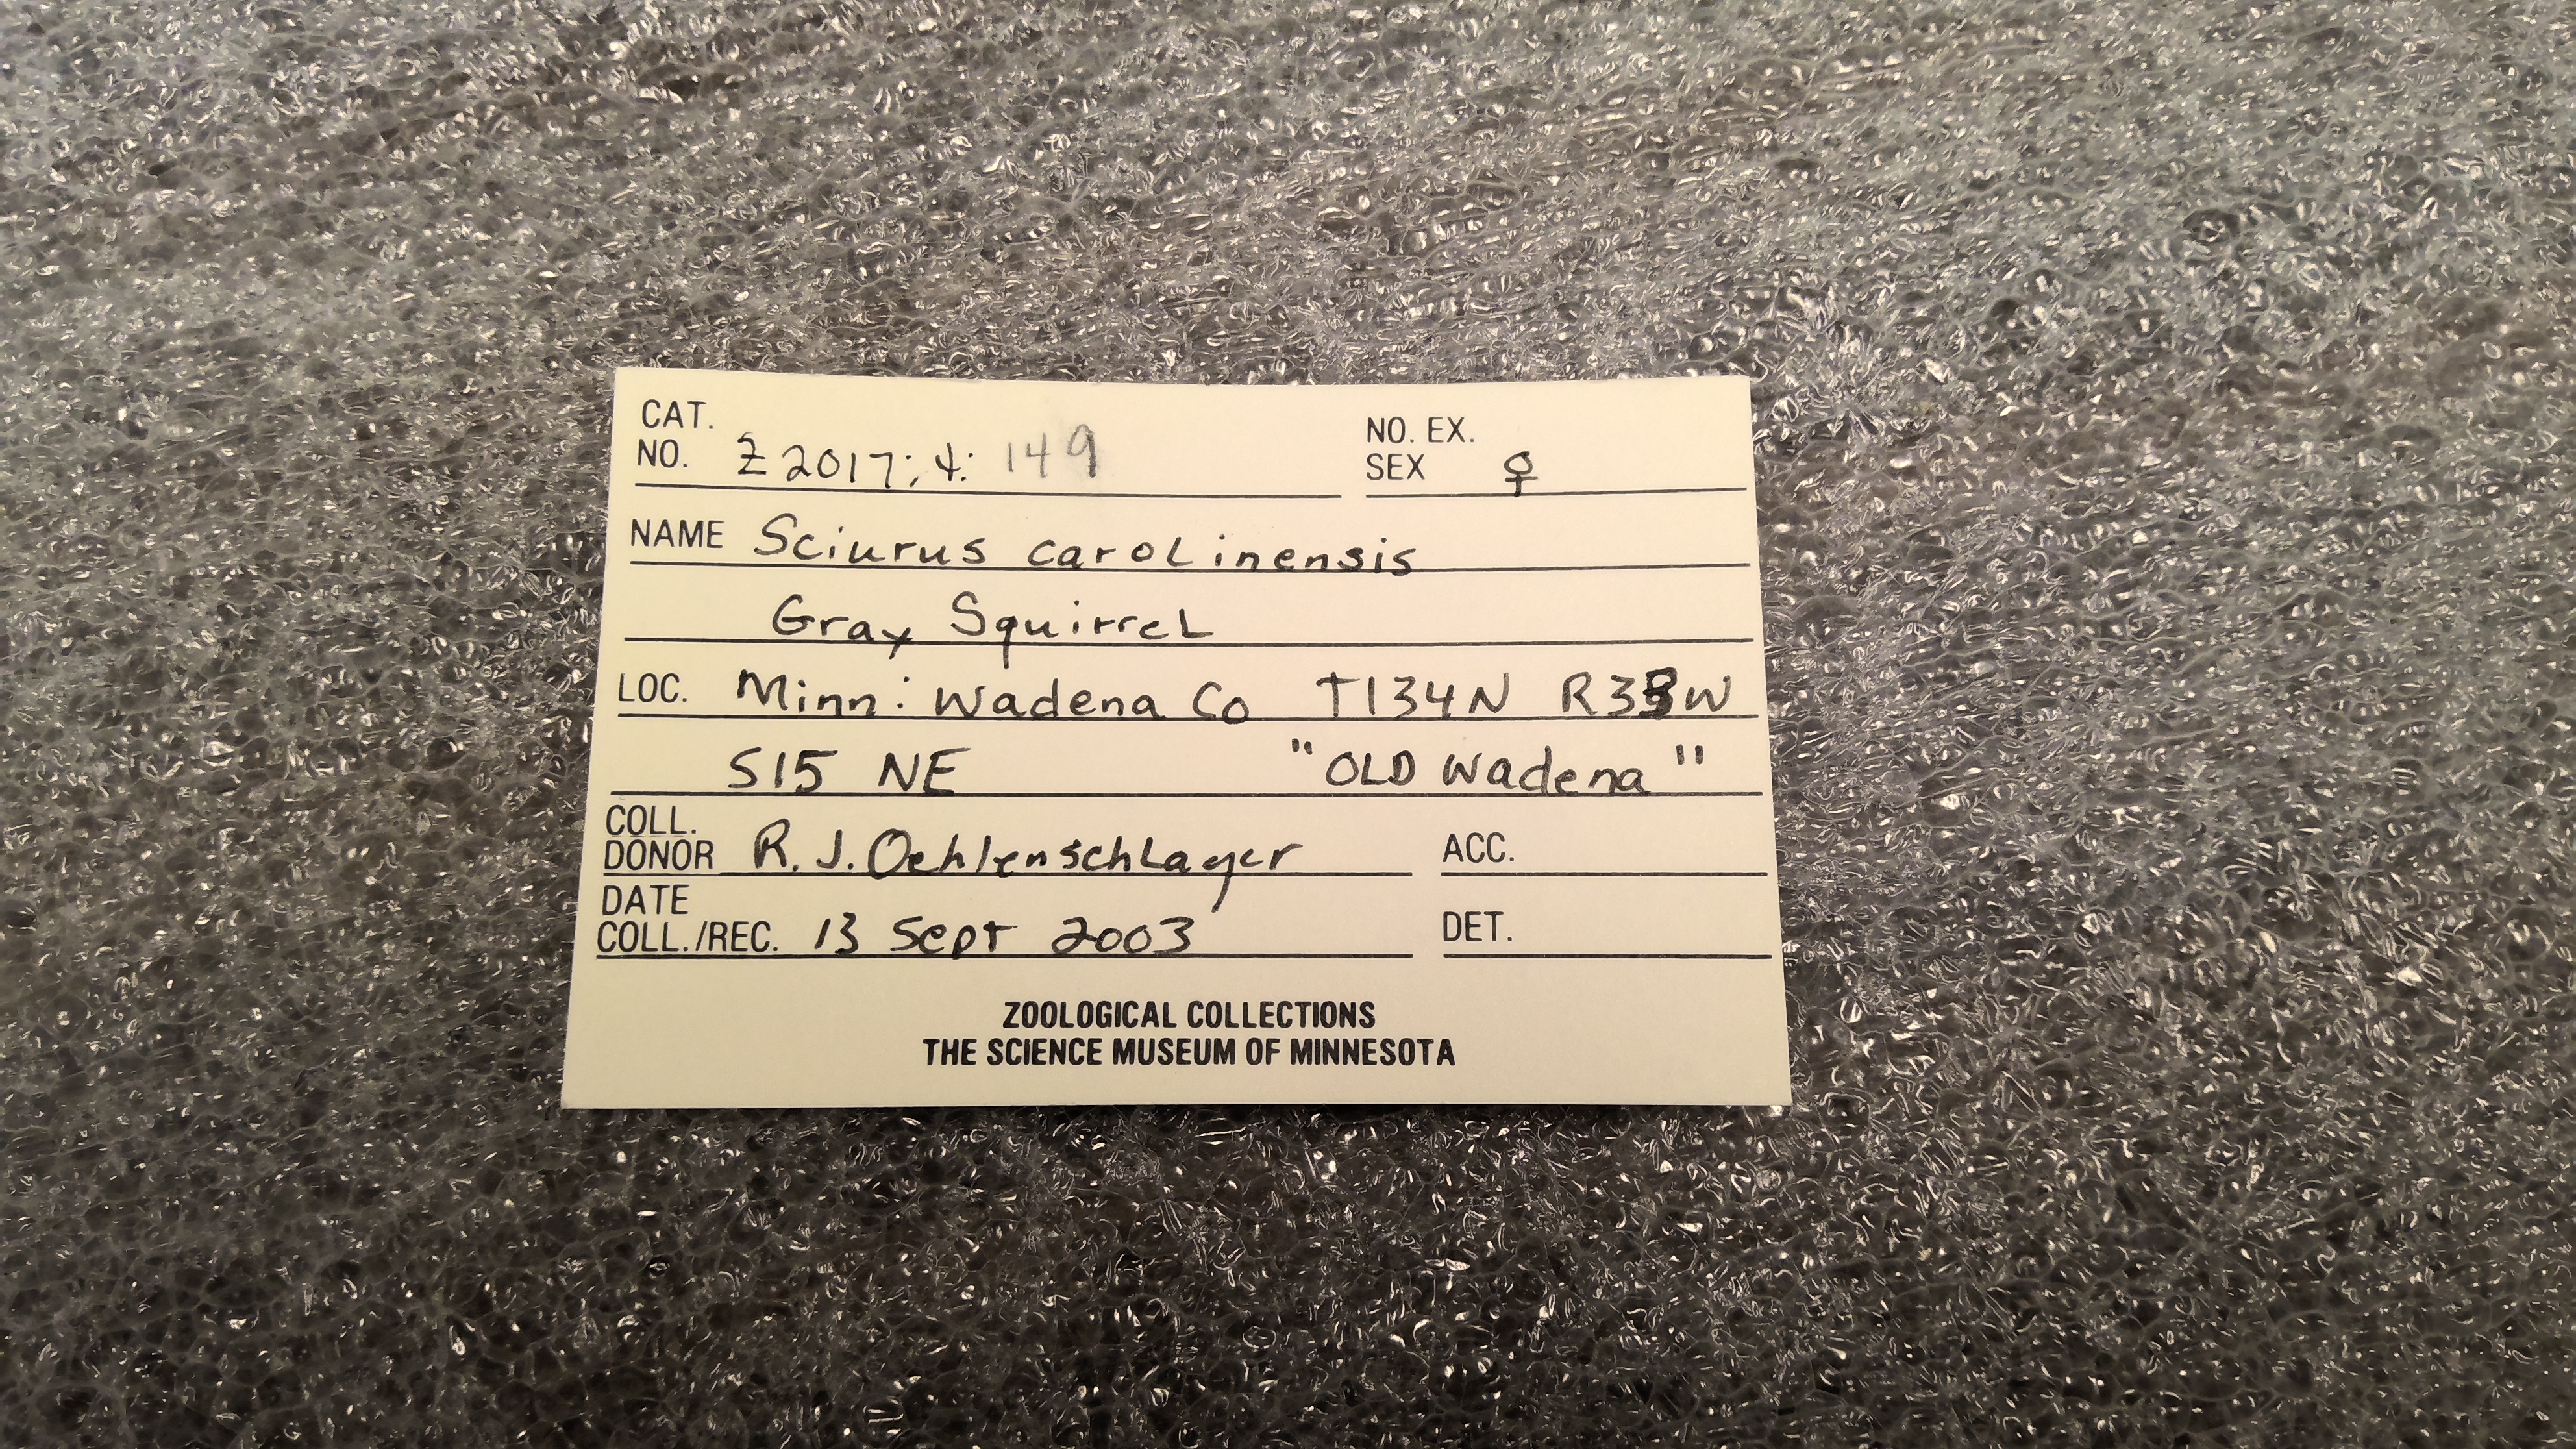 CAT.
NO. Z2017:4:149
NO. EX.
SEX ♀
NAME Sciurus carolinensis
Gray Squirrel
LOC. Minn: Wadena Co T134N
S15 NE "OLD Wadena"
COLL.
DONOR R. J. Oehlenschlager
ACC.
DATE
COLL./REC. 13 Sept 2003
DET.
ZOOLOGICAL COLLECTIONS
THE SCIENCE MUSEUM OF MINNESOTA